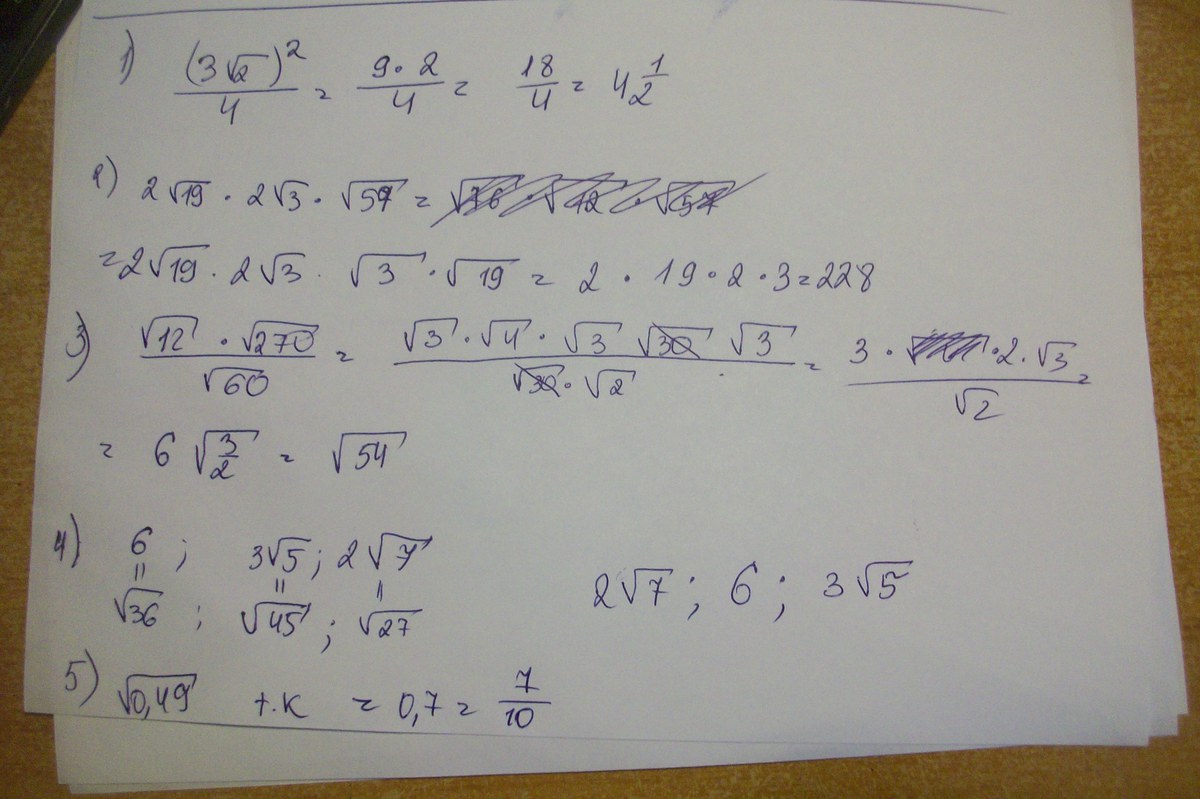 1) (3√2)²/4 = 9·2/4 = 18/4 = 4 1/2
2) 2√19 · 2√3 · √57 =
= 2√19 · 2√3 · √3 · √19 = 2 · 19 · 2 · 3 = 228
3) √12 · √270 / √60 = √3 · √4 · √3 √30 √3 / √30 · √2 = 3 · · 2 · √3 / √2 =
= 6 √3/2 = √54
4) 6 ; 3√5 ; 2√7
= = =
√36 ; √45 ; √27 2√7 ; 6 ; 3√5
5) √0,49 т.к = 0,7 = 7/10